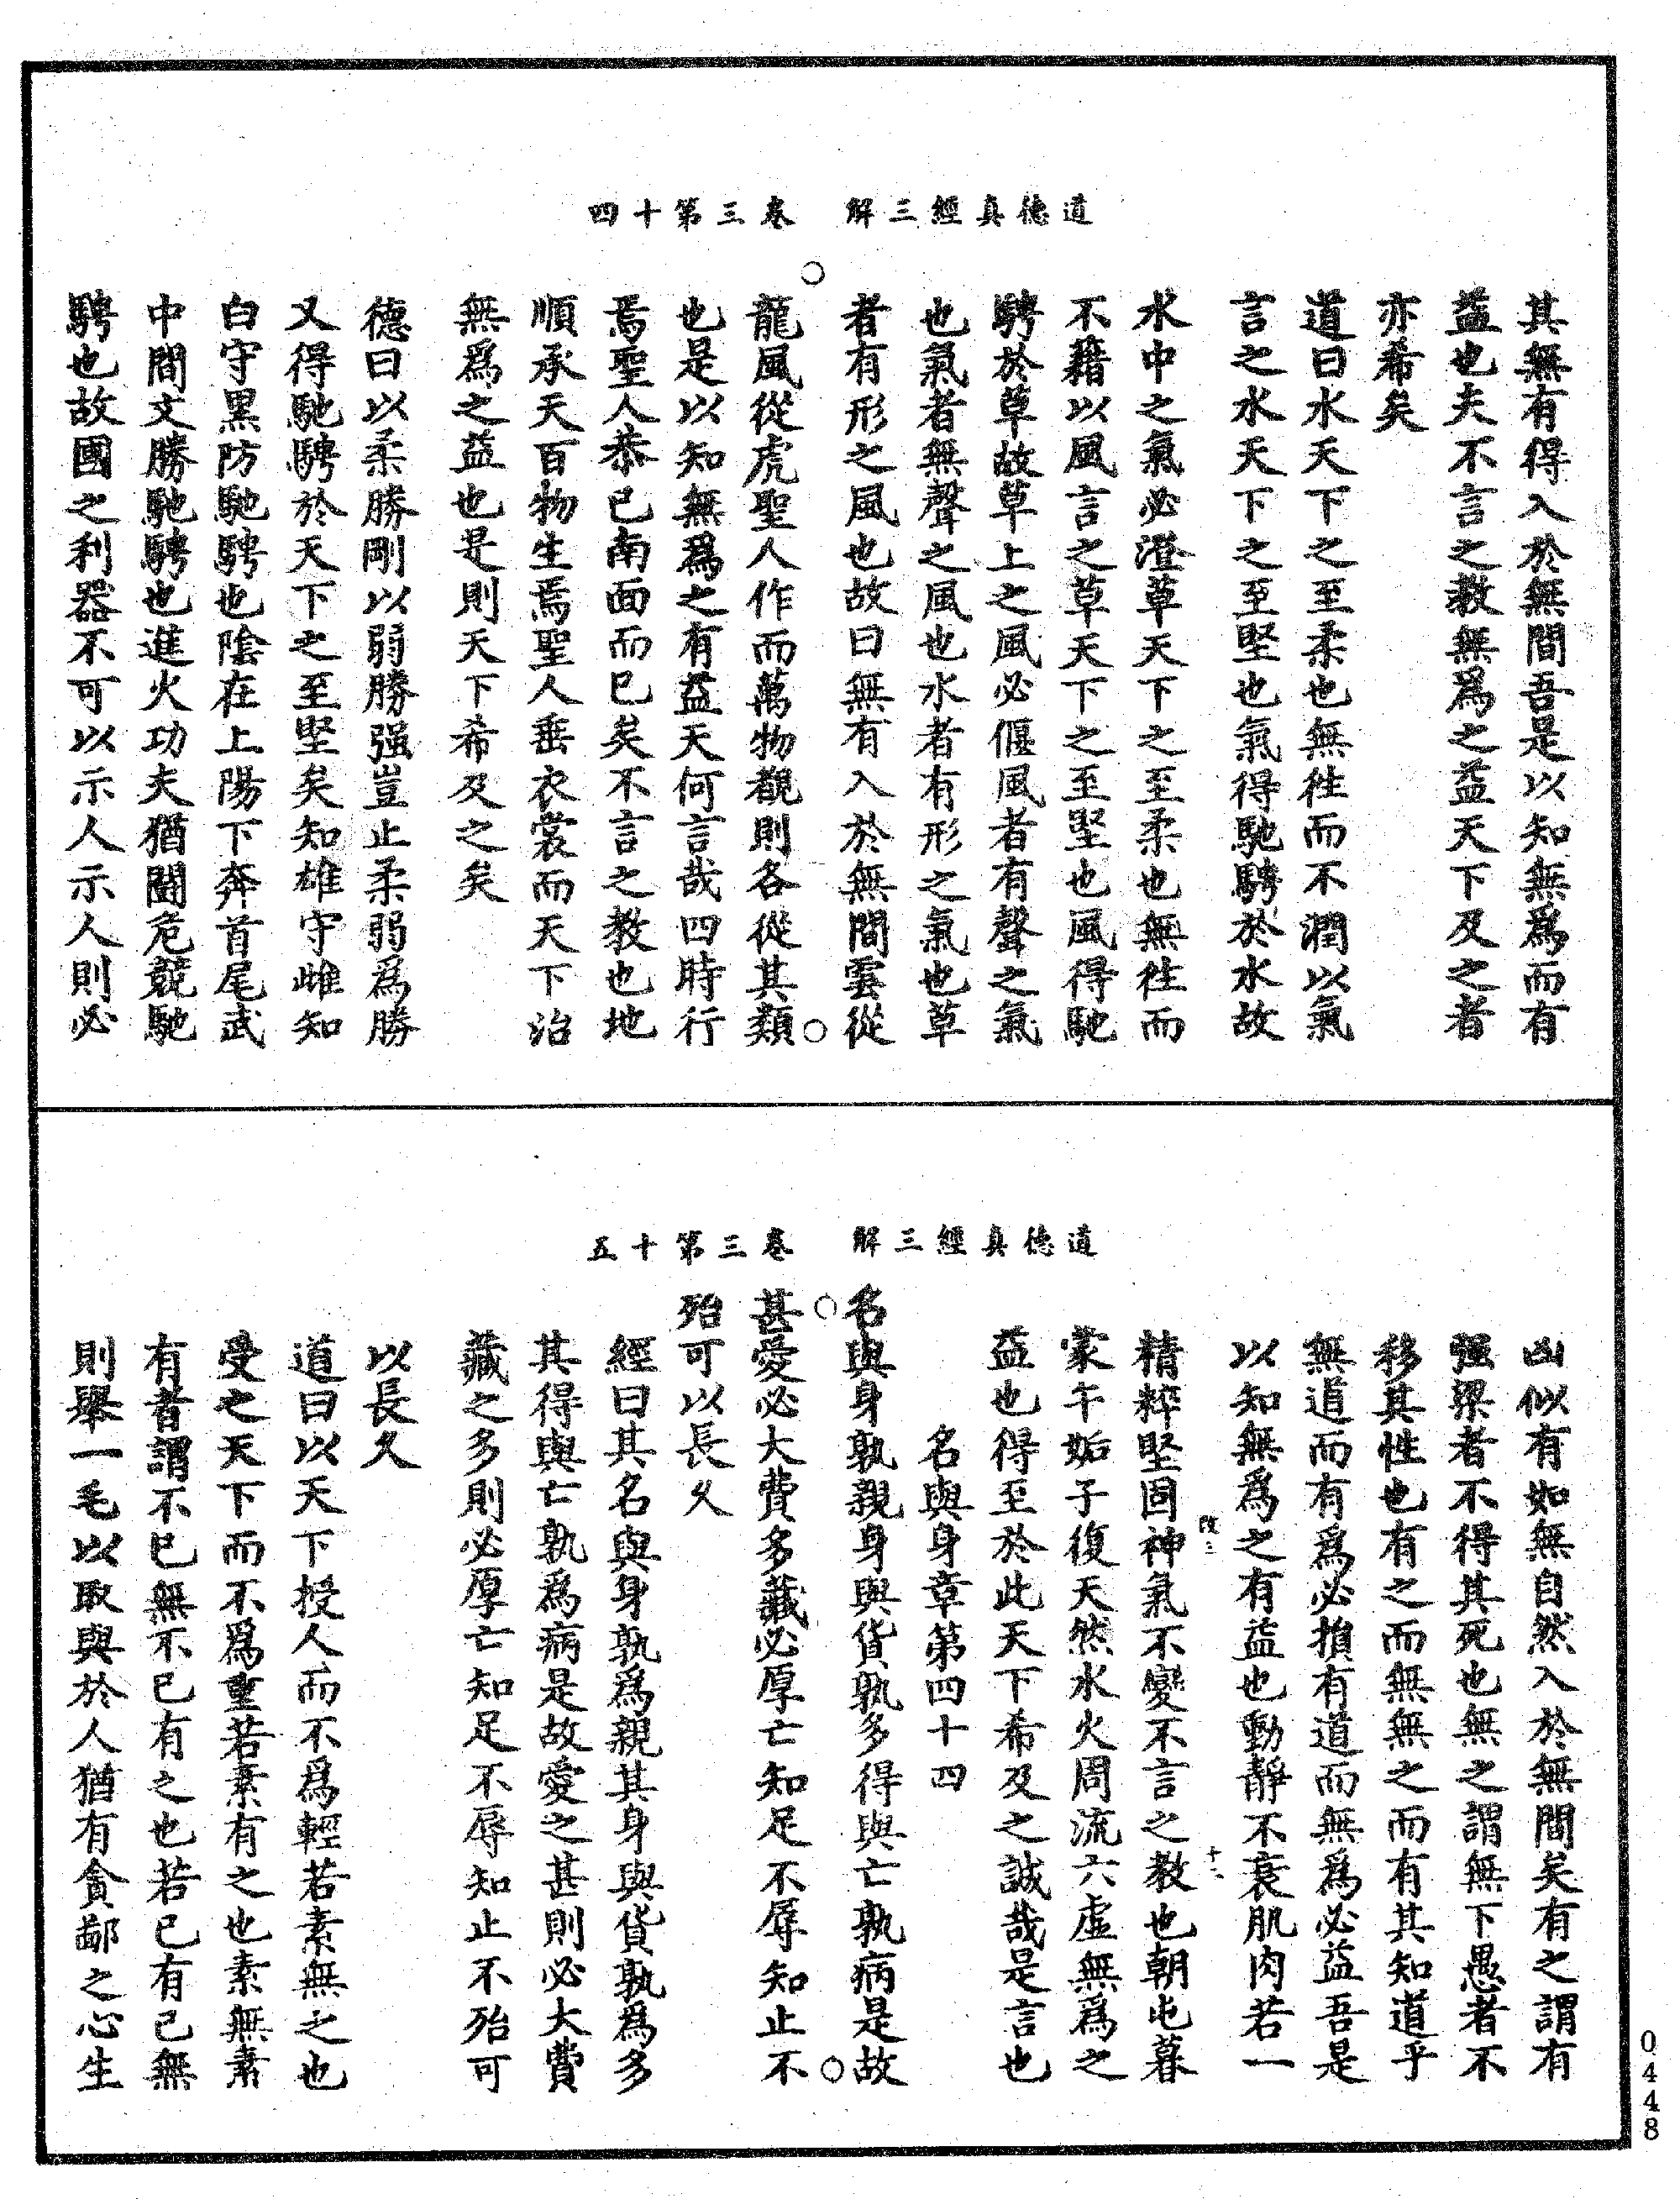 道德真經三解　卷三第十四
其無有得入於無間吾是以知無爲而有
益也夫不言之教無爲之益天下及之者
亦希矣
道曰水天下之至柔也無徃而不潤以氣
言之水天下之至堅也氣得馳騁於水故
水中之氣必澄草天下之至柔也無徃而
不藉以風言之草天下之至堅也風得馳
騁於草故草上之風必偃風者有聲之氣
也氣者無聲之風也水者有形之氣也草
者有形之風也故曰無有入於無間雲從
龍風從虎聖人作而萬物覩則各從其類
也是以知無爲之有益天何言哉四時行
焉聖人恭已南面而已矣不言之教也地
順承天百物生焉聖人垂衣裳而天下治
無爲之益也是則天下希及之矣
德曰以柔勝剛以弱勝强豈止柔弱爲勝
又得馳騁於天下之至堅矣知雄守雌知
白守黑防馳騁也陰在上陽下奔首尾武
中間文勝馳騁也進火功夫猶鬭危競馳
騁也故國之利器不可以示人示人則必
道德真經三解　卷三第十五
凶似有如無自然入於無間矣有之謂有
强梁者不得其死也無之謂無下愚者不
移其性也有之而無無之而有其知道乎
無道而有爲必損有道而無爲必益吾是
以知無爲之有益也動靜不衰肌肉若一
精粹堅固神氣不變不言之教也朝屯暮
蒙午姤子復天然水火周流六虛無爲之
益也得至於此天下希及之誠哉是言也
名與身章第四十四
名與身孰親身與貨孰多得與亡孰病是故
甚愛必大費多藏必厚亡知足不辱知止不
殆可以長久
經曰其名與身孰爲親其身與貨孰爲多
其得與亡孰爲病是故愛之甚則必大費
藏之多則必厚亡知足不辱知止不殆可
以長久
道曰以天下授人而不爲輕若素無之也
受之天下而不爲重若素有之也素無素
有者謂不已無不已有之也若已有已無
則舉一毛以取與於人猶有貪鄙之心生
0448